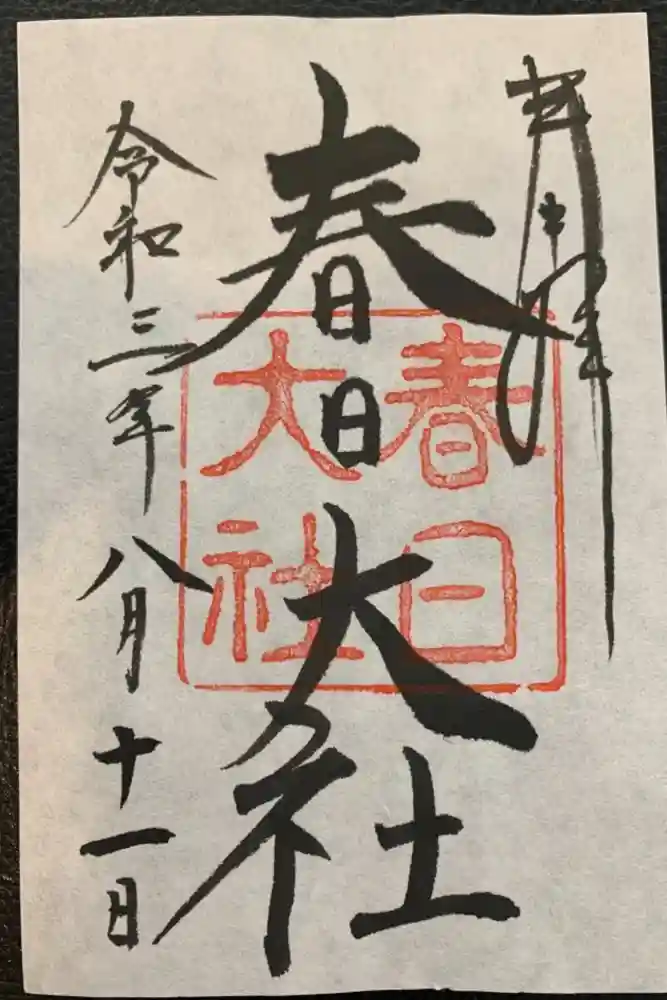 奉拝
春日大社
春日
大社
令和三年八月十一日